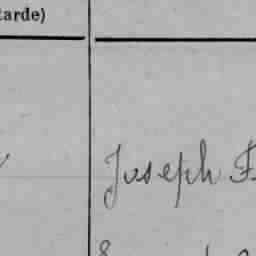 tarde)
Joseph F